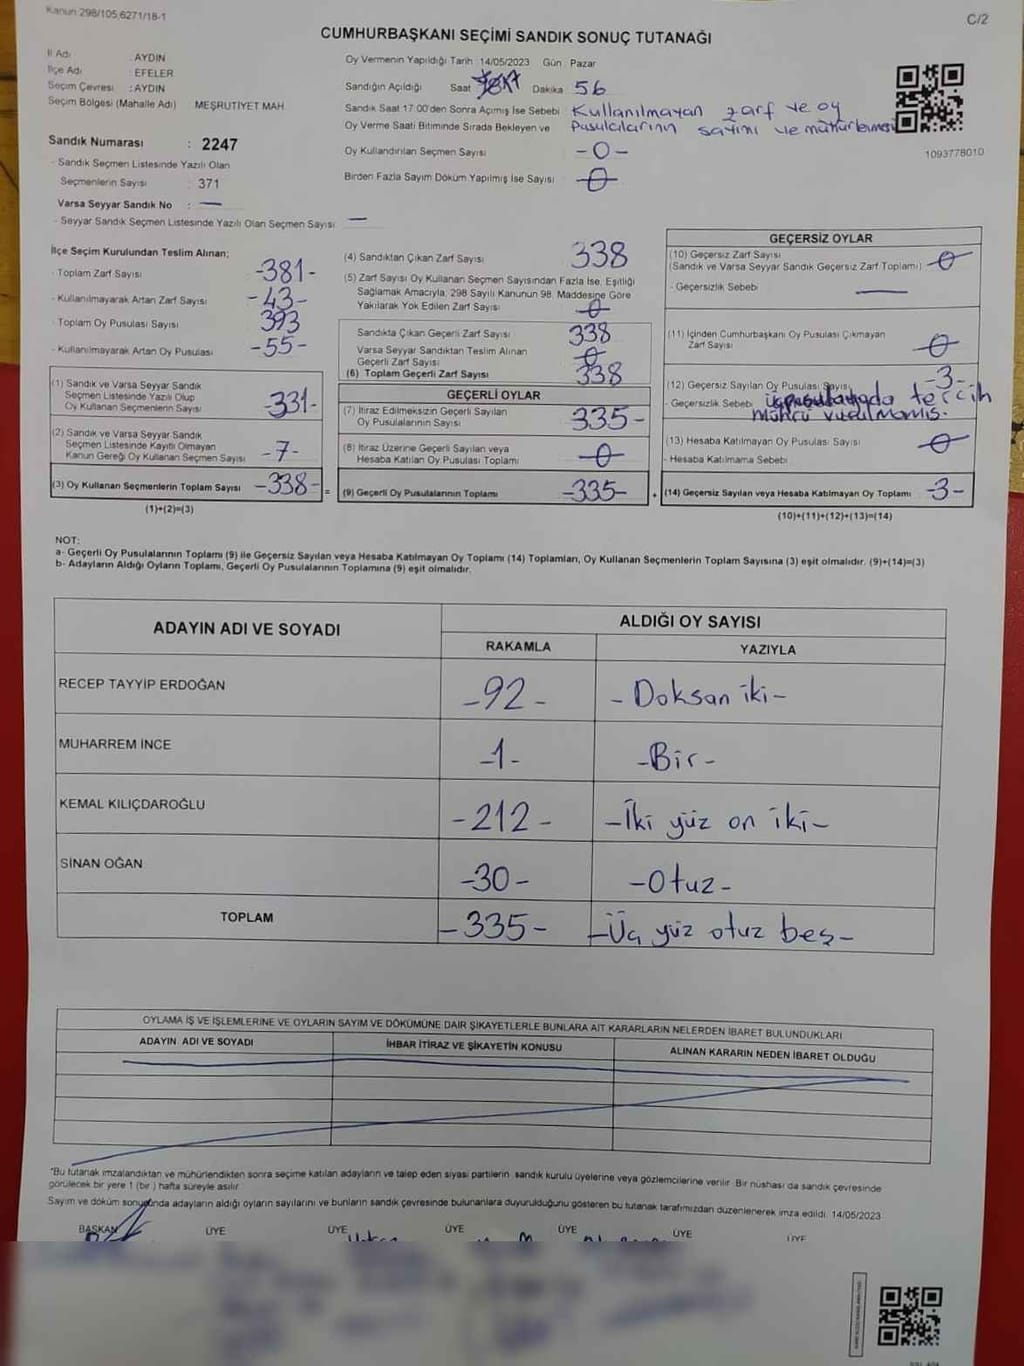 Kanun 298/105,6271/18-1
C/2
CUMHURBAŞKANI SEÇİMİ SANDIK SONUÇ TUTANAĞI
İl Adı : AYDIN
İlçe Adı : EFELER
Seçim Çevresi : AYDIN
Seçim Bölgesi (Mahalle Adı) MEŞRUTİYET MAH
Sandık Numarası : 2247
- Sandık Seçmen Listesinde Yazılı Olan
Seçmenlerin Sayısı : 371
Varsa Seyyar Sandık No : —
- Seyyar Sandık Seçmen Listesinde Yazılı Olan Seçmen Sayısı : —
Oy Vermenin Yapıldığı Tarih 14/05/2023 Gün Pazar
Sandığın Açıldığı Saat Dakika 56
Sandık Saat 17:00'den Sonra Açımış İse Sebebi Kullanılmayan zarf ve oy
Oy Verme Saati Bitiminde Sırada Bekleyen ve pusulalarının sayımı ve mühürlenmesi
Oy Kullandırılan Seçmen Sayısı -0-
Birden Fazla Sayım Döküm Yapılmış İse Sayısı 0
1093778010
İlçe Seçim Kurulundan Teslim Alınan;
- Toplam Zarf Sayısı -381-
- Kullanılmayarak Artan Zarf Sayısı -43-
- Toplam Oy Pusulası Sayısı 393
- Kullanılmayarak Artan Oy Pusulası -55-
(1) Sandık ve Varsa Seyyar Sandık
Seçmen Listesinde Yazılı Olup
Oy Kullanan Seçmenlerin Sayısı -331-
(2) Sandık ve Varsa Seyyar Sandık
Seçmen Listesinde Kayıtlı Olmayan
Kanun Gereği Oy Kullanan Seçmen Sayısı -7-
(3) Oy Kullanan Seçmenlerin Toplam Sayısı -338- =
(1)+(2)=(3)
(4) Sandıktan Çıkan Zarf Sayısı 338
(5) Zarf Sayısı Oy Kullanan Seçmen Sayısından Fazla İse, Eşitliği
Sağlamak Amacıyla, 298 Sayılı Kanunun 98. Maddesine Göre
Yakılarak Yok Edilen Zarf Sayısı 0
Sandıkta Çıkan Geçerli Zarf Sayısı 338
Varsa Seyyar Sandıktan Teslim Alınan
Geçerli Zarf Sayısı 0
(6) Toplam Geçerli Zarf Sayısı 338
GEÇERLİ OYLAR
(7) İtiraz Edilmeksizin Geçerli Sayılan
Oy Pusulalarının Sayısı 335-
(8) İtiraz Üzerine Geçerli Sayılan veya
Hesaba Katılan Oy Pusulası Toplamı 0
(9) Geçerli Oy Pusulalarının Toplamı -335- +
GEÇERSİZ OYLAR
(10) Geçersiz Zarf Sayısı
(Sandık ve Varsa Seyyar Sandık Geçersiz Zarf Toplamı) 0
- Geçersizlik Sebebi —
(11) İçinden Cumhurbaşkanı Oy Pusulası Çıkmayan
Zarf Sayısı 0
(12) Geçersiz Sayılan Oy Pusulası Sayısı -3-
- Geçersizlik Sebebi tercih
mührü vurulmamış.
(13) Hesaba Katılmayan Oy Pusulası Sayısı 0
- Hesaba Katılmama Sebebi
(14) Geçersiz Sayılan veya Hesaba Katılmayan Oy Toplamı -3-
(10)+(11)+(12)+(13)=(14)
NOT:
a- Geçerli Oy Pusulalarının Toplamı (9) ile Geçersiz Sayılan veya Hesaba Katılmayan Oy Toplamı (14) Toplamları, Oy Kullanan Seçmenlerin Toplam Sayısına (3) eşit olmalıdır. (9)+(14)=(3)
b- Adayların Aldığı Oyların Toplamı, Geçerli Oy Pusulalarının Toplamına (9) eşit olmalıdır.
ADAYIN ADI VE SOYADI
ALDIĞI OY SAYISI
RAKAMLA YAZIYLA
RECEP TAYYİP ERDOĞAN -92- -Doksan iki-
MUHARREM İNCE -1- -Bir-
KEMAL KILIÇDAROĞLU -212- -İki yüz on iki-
SİNAN OĞAN -30- -Otuz-
TOPLAM -335- -Üç yüz otuz beş-
OYLAMA İŞ VE İŞLEMLERİNE VE OYLARIN SAYIM VE DÖKÜMÜNE DAİR ŞİKAYETLERLE BUNLARA AİT KARARLARIN NELERDEN İBARET BULUNDUKLARI
ADAYIN ADI VE SOYADI İHBAR İTİRAZ VE ŞİKAYETİN KONUSU ALINAN KARARIN NEDEN İBARET OLDUĞU
*Bu tutanak imzalandıktan ve mühürlendikten sonra seçime katılan adayların ve talep eden siyasi partilerin sandık kurulu üyelerine veya gözlemcilerine verilir. Bir nüshası da sandık çevresinde
görülecek bir yere 1 (bir) hafta süreyle asılır.
Sayım ve döküm sonucunda adayların aldığı oyların sayılarını ve bunların sandık çevresinde bulunanlara duyurulduğunu gösteren bu tutanak tarafımızdan düzenlenerek imza edildi. 14/05/2023
BAŞKAN ÜYE ÜYE ÜYE ÜYE ÜYE ÜYE